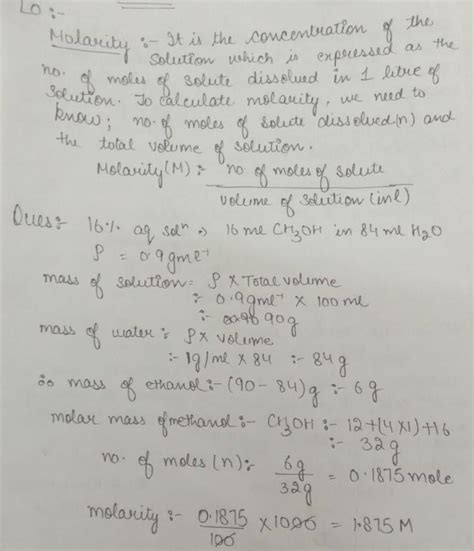 LO :-
Molarity :- It is the concentration of the
solution which is expressed as the
no. of moles of solute dissolved in 1 litre of
solution. To calculate molarity, we need to
know; no. of moles of solute dissolved(n) and
the total volume of solution.
Molarity(M) :- no. of moles of solute
volume of solution (in l)
Ques:- 16% aq solⁿ → 16 ml CH₃OH in 84 ml H₂O
ρ = 0.9 gml⁻¹
mass of solution = ρ × Total volume
:- 0.9 gml⁻¹ × 100 ml
:- 90g
mass of water :- ρ × volume
:- 1g/ml × 84 :- 84g
∴ mass of ethanol :- (90-84)g :- 6g
molar mass of methanol :- CH₃OH :- 12+(4×1)+16
:- 32g
no. of moles (n) :- 6g/32g = 0.1875 mole
molarity :- 0.1875/100 × 1000 = 1.875 M